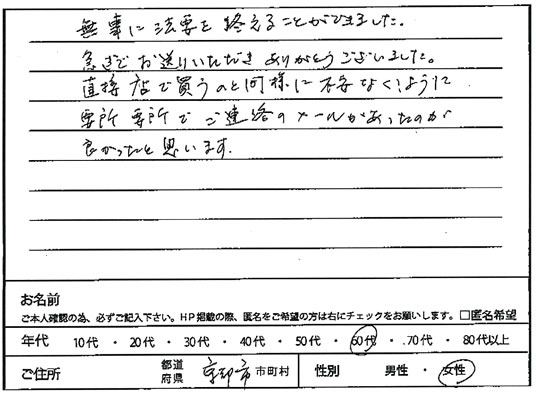 無事に法要を終えることができました。
急ぎでお送りいただきありがとうございました。
直接店で買うのと同様に不安なくいように
要所要所でご連絡のメールがあったのが
良かったと思います。
お名前
ご本人確認の為、必ずご記入下さい。HP掲載の際、匿名をご希望の方は右にチェックをお願いします。□匿名希望
年代 10代・20代・30代・40代・50代・60代・70代・80代以上
ご住所 都道府県 京都市 市町村 性別 男性・女性